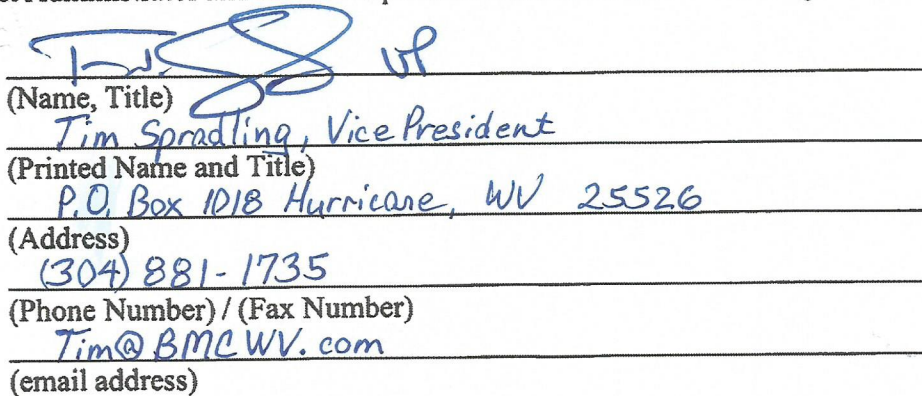 VP
(Name, Title)
Tim Spradling, Vice President
(Printed Name and Title)
P.O. Box 1018 Hurricane, WV 25526
(Address)
(304) 881-1735
(Phone Number) / (Fax Number)
Tim@BMCWV.com
(email address)